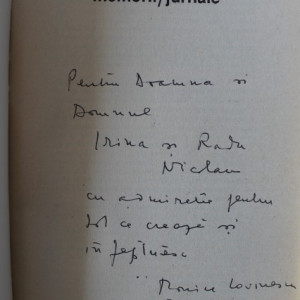 memorii/jurnale
Pentru Doamna si
Domnul
Irina si Radu
Nicolau
cu admiratie pentru
tot ce crează și
înfăptuesc
Monica Lovinescu